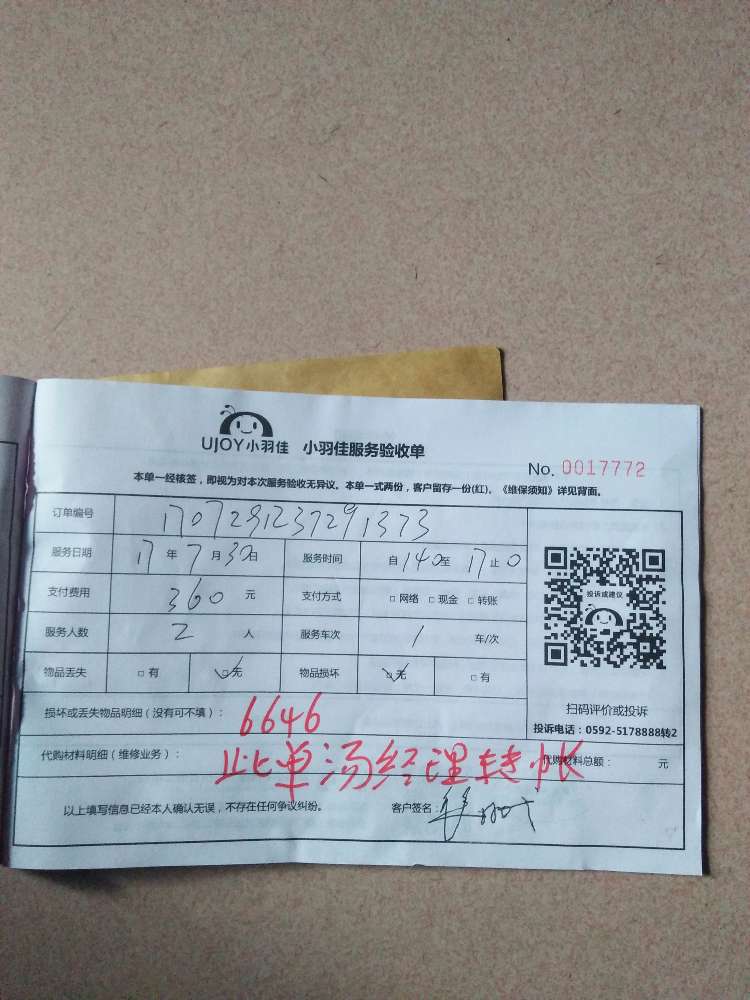 UJOY小羽佳 小羽佳服务验收单
No. 0017772
本单一经核签，即视为对本次服务验收无异议。本单一式两份，客户留存一份(红)。《维保须知》详见背面。
订单编号 1707291237291373
服务日期 17年7月30日 服务时间 自140至17止0
支付费用 360元 支付方式 □网络 □现金 □转账
服务人数 2人 服务车次 1车/次
物品丢失 □有 □无 物品损坏 □无 □有
投诉或建议
扫码评价或投诉
投诉电话：0592-5178888转2
损坏或丢失物品明细（没有可不填）： 6646
代购材料明细（维修业务）： 此单汤经理转帐 代购材料总额： 元
以上填写信息已经本人确认无误，不存在任何争议纠纷。 客户签名：